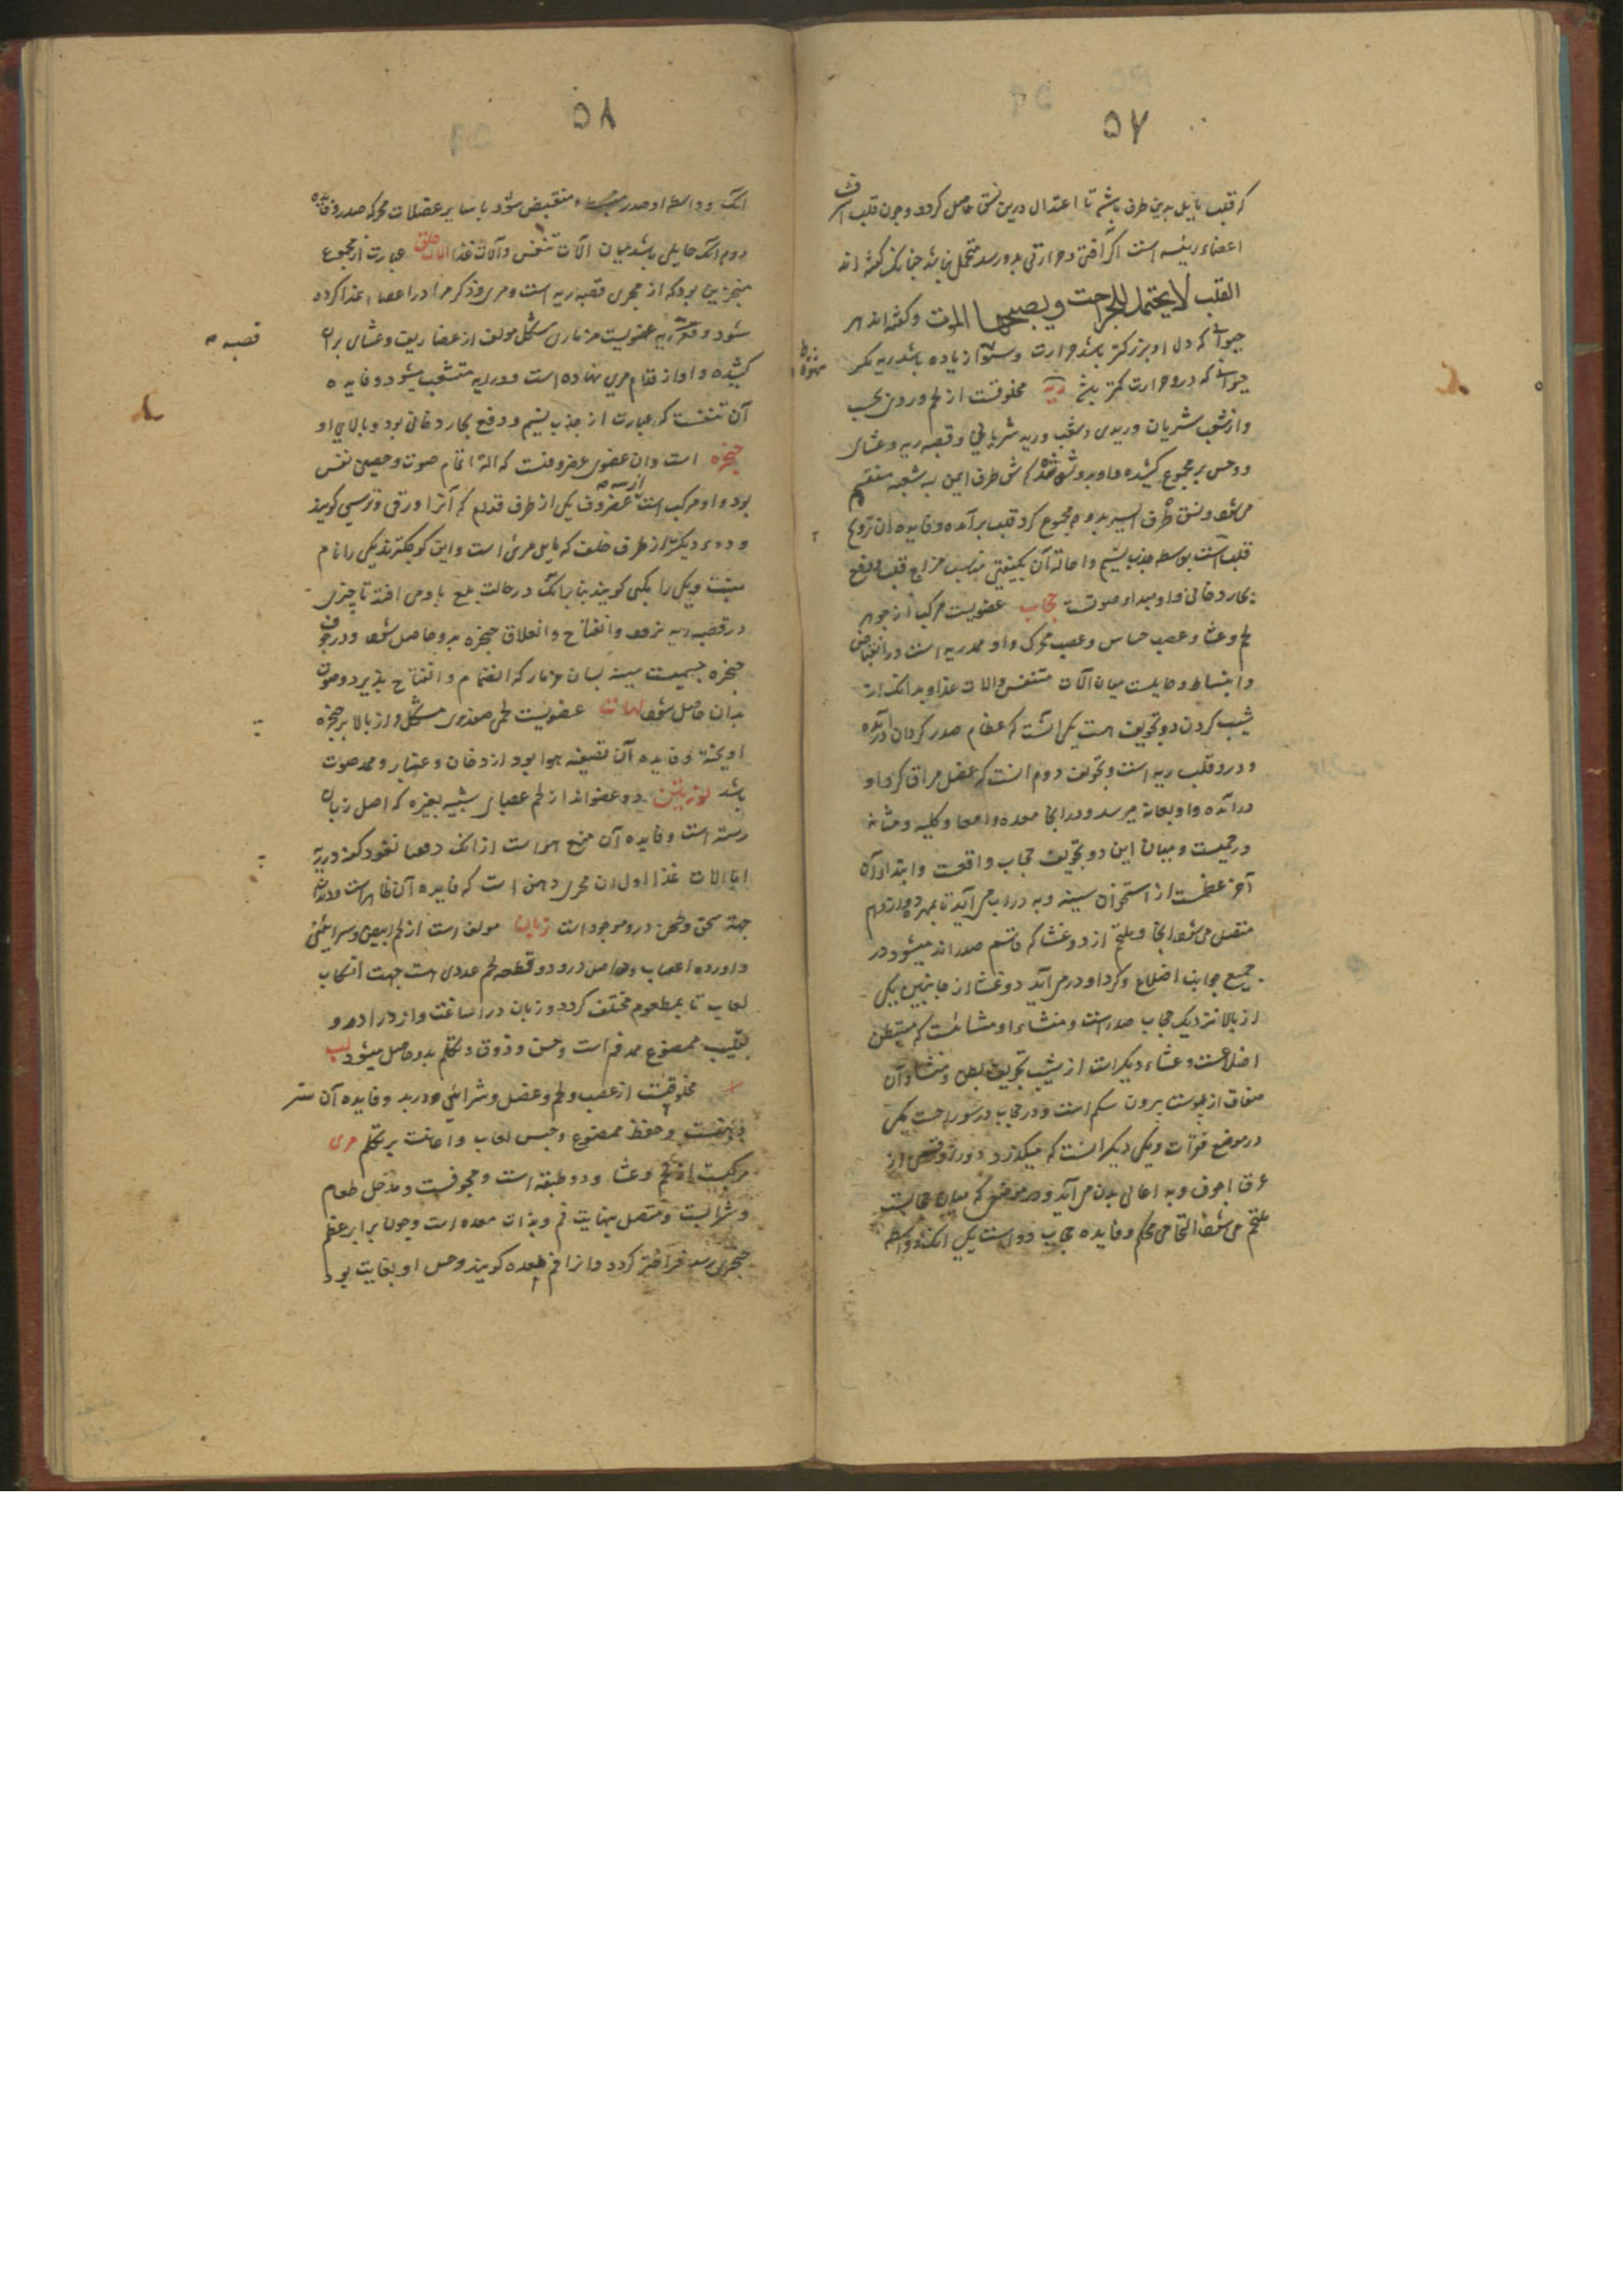 ۵۷
که قلب مایل بدین طرف باشد تا اعتدال درین شق حاصل کردد و چون قلب اشرف
اعضاء رئیسه است اکر آفتی و حرارتی بدو رسد متحمل نباشد چنانک کفته اند
القلب لا یحتمل للجراحت و یصبحها الموت و کفته اند هر
حیوانی که دل او بزرکتر باشد حرارت و او زیاده باشد مکر
حیوانی که درو حرارت کمتر باشد ریه مخلوقست از لحم وردی
و از شعب شریان وریدی و شعب ورید شریانی و قصبه ریه و غشای
و حس بر مجموع کشیده و او بدو شق شده که شق طرف ایمن به شعبه منقسم
می شود و شق طرف ایسر بدو و مجموع کرد قلب برآمده و فایده آن ترویح
قلب است بواسطه جذب نسیم و احالة آن بکیفیتی مناسب مزاج قلب و دفع
بخار دخانی و او مبداء صوتست حجاب عضویست مرکب از جوهر
لحم و غشا و عصب حساس و عصب محرک و او ممد ریه است در انقباض
و انبساط و حایلست میان آلات تنفس و الات غذا و بدانک از
شیب کردن دو تجویف هست یکی آنست که عظام صدر کرد آن درآمده
و درو قلب و ریه است و تجویف دوم آنست که عضل مراق کرد او
درآمده و او بعانه میرسد و در آنجا معده و امعا و کلیه و مثانه
و رحمست و میان این دو تجویف حجاب واقعست و ابتداء آن
آخر عظمست از استخوان سینه و به دراب می آید تا بمهره دوازدهم
متصل می شود آنجا و ملتحم از دو غشا که قاسم صدر اند میشود در
جمیع جوانب اضلاع و کرد او درمی آید دو غشا از جانبین یکی
از بالا نزدیک حجاب صدرست و منشاء او غشائست که مستبطن
اضلاعست و غشاء دیکر است از شیب تجویف بطن و منشاء آن
صفاق از پوست برون شکم است و در حجاب دو سوراخست یکی
در موضع فقرات و یکی دیکر آنست که میکذرد درو از
عرق اجوف و به اعالی بدن می آید و در موضعی که میان حجابست
ملتحم می شود التحامی محکم و فایده حجاب دو است یکی آنک بواسطه
۵۸
آنک بواسطه او صدر منقبض شود با سایر عضلات محرکه صدر و فایده
دوم آنک حایلی باشد میان آلات تنفس و آلات غذا حلق عبارت از مجموع
منجزین بود که از مجری قصبه ریه است و مری و ذکر مری در اعضاء غذا کرده
شود و قصبه ریه عضویست مزماری شکل مولف از غضاریف و غشای بران
کشیده و او از قدام مری نهاده است و در ریه متشعب میشود و فایده
آن تنفسست که عبارت از جذب نسیم و دفع بخار دخانی بود و بالای او
حنجره است و آن عضوی غضروفیست که آلة اتمام صوت و حصین نفس
بود و او مرکب است از سه غضروف یکی از طرف قدام که آنرا درقی و ترسی کویند
و دوم دیکر از طرف خلف که مایل مری است و این کوچکتر ندیکی را نام
نیست و یکی را مکبی کویند بنا برانک در حالت بلع با وی افتد تا چیزی
در قصبه ریه نرود و انفتاح و انغلاق حنجره بدو حاصل شود و در جوف
حنجره جسمیست شبیه بلسان مزمار که انضمام و انفتاح پذیرد و صوت
بدان حاصل شود لهات عضویست لحمی صنوبری شکل و از بالا بر حنجره
آویخته و فایده آن تصفیه هوا بود از دخان و غبار و ممد صوت
باشد لوزتین دو عضواند از لحم عصبانی شبیه بغده که اصل زبان
رسته است و فایده آن منع هوا است از آنک دفعا نفود کند در ریه
اما الات غذا اول آن مجری دهن است که فایده آن ظاهر است و دندان
جهة سحق و طحن درو موجود است زبان مولف است از لحم ابیض و شرایین
و اورده اعصاب و در اصل درو دو قطعه لحم غددی است جهت انسکاب
لعاب تا بمطعوم مختلف کردد و زبان در اساغت و ازدراد و
تقلیب ممضوغ ممد فم است و حس و ذوق و تکلم بدو حاصل میشود لب
مخلوقست از عصب و لحم و عضل و شرائین و ورید و فایده آن ستر
دهنست و حفظ ممضوغ و حبس لعاب و اعانت بر تکلم مری
مرکبست از لحم و غشا و دو طبقه است و مجوفست و مدخل طعام
و شرابست و متصل بنهایت فم و بذات معده است و چون برابر عظم
حنجری رسد فراختر کردد و انرا فم معده کویند و حس او بغایت بود
قصبه